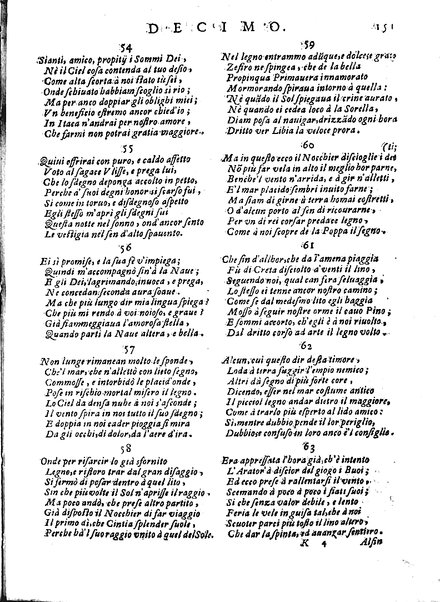 DECIMO. 151
54
Sianti, amico, propitij i Sommi Dei,
Nè il Ciel cosa contenda al tuo desio,
Come alta scorta à noi stato tu sei,
Onde schiuato habbiam scoglio sì rio;
Ma per anco doppiar gli oblighi miei
Vn beneficio estremo ancor chied'io;
In Itaca n'andrai per nostro amore,
Che farmi non potrai gratia maggiore.
55
Quini offrirai con puro, e caldo affetto
Voto al sagace Vlisse, e prega lui,
Che lo sdegno deponga accolto in petto,
Perche a' suoi degni honor di scarso fui,
Si come in toruo, e disdegnoso aspetto
Egli stesso m'aprì gli sdegni sui
Questa notte nel sonno, ond'ancor sento
Le vestigia nel sen d'alto spauento.
56
Ei sì promise, e la sua fè v'impiega;
Quindi m'accompagnò sin'à la Naue;
E gli Dei, lagrimando, inuoca, e prega,
Ne concedan seconda aura soaue.
Ma che più lungo dir mia lingua spiega?
Che più mi rendo à voi noioso, e graue?
Già fiammeggiaua l'amorosa stella,
Quando parti la Naue altera, e bella.
57
Non lunge rimanean molto le sponde,
Che'l mar, che n'allettò con lieto segno,
Commosse, e intorbidò le placid'onde,
Pose in rischio mortal misero il legno.
Lo Ciel da densa nube à noi s'asconde;
Il vento spira in noi tutto il suo sdegno;
E doppia in noi cader pioggia si mira
Da gli occhi, di dolor, da l'aere d'ira.
58
Onde per risarcir lo già sfornito
Legno, e ristoro trar dal gran disaggio,
Si fermò di posar dentro à quel lito,
Sin che più volte il Sol n'aprisse il raggio.
Ma poco andò, che prese altro partito,
Già disposto il Nocchier di far viaggio
Il primo dì, che Cintia splender suole,
Perche hà'l suo raggio vnito à quel del Sole.
59
Nel legno entrammo adunque, e dolce, e grato
Zefiro ne spingea, che de la bella
Propinqua Primauera innamorato
Mormorando spiraua intorno à quella:
Nè quando il Sol spiegaua il crine aurato,
Nè quando ei cedea loco à la Sorella,
Diam posa al nauigar, drizzando ogni hora
Dritto ver Libia la veloce prora.
60
Ma in questo ecco il Nocchier discioglie i den (ti;
Nò più far vela in alto il meglio hor parne,
Benche'l vento n'arrida, e à gir n'alletti;
E'l mar placido sembri inuito farne;
Ma siam di girne à terra homai costretti,
O d'alcun porto al sen di ricourarne;
Per vn di rei corsar predace legno,
Come à noi scopre de la Poppa il segno.
61
Che sin d'allor, che da l'amena piaggia
Fù di Creta disciolto à venti il lino,
Seguendo noi, qual can fera seluaggia,
Lo stesso ei tenne ancor nostro camino;
Come se dal medesmo lito egli haggia
Mosso à seguir nostre orme il cauo Pino;
E sommi accorto, ch'egli è à noi riuolto,
Dal dritto corso ad arte il legno ha volto.
62
Alcun, cui questo dir desta timore,
Loda à terra fuggir l'empio nemico;
Altri dà segno di più forte core,
Dicendo, esser nel mar costume antico
Il picciol legno andar dietro il maggiore,
Come à trarlo più esperto al lido amico:
Sì, mentre dubbio pende il lor periglio,
Dubbio, e confuso in loro anco è'l consiglio.
63
Era appressata l'hora già, ch'è intento
L'Arator à discior del giogo i Buoi;
Ed ecco prese à rallentarsi il vento,
Scemando à poco à poco i fiati suoi;
Sì che senza valor debile, e lento
Feria le vele in guisa tal, ch'à noi
Scuoter parei più tosto il lino altero,
Che dar la spinta, ed auanzar sentiero.
K 4 Alfin